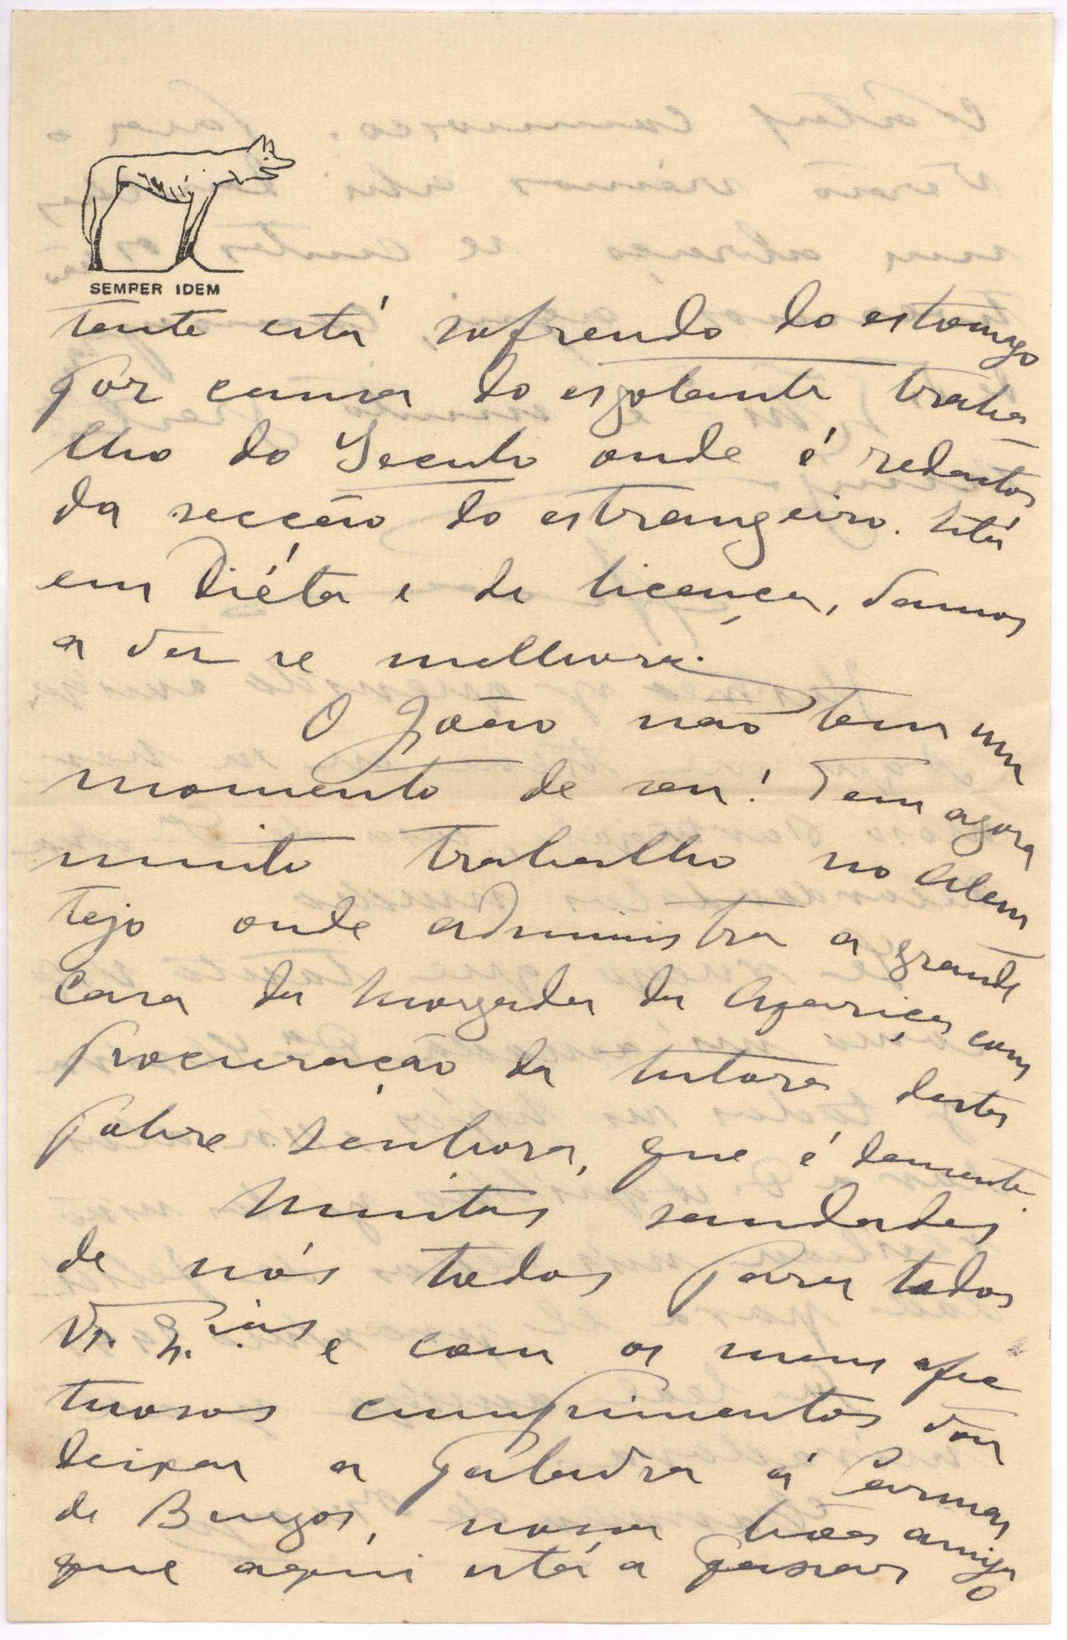 SEMPER IDEM
tante está sofrendo do estomago
por causa do esgotante traba
lho do Seculo onde é redactor
da secção do estrangeiro. Está
em diéta e de licença, vamos
a ver se melhora.
O João não tem um
momento de seu! Tem agora
muito trabalho no Alem
tejo onde administra a grande
casa da Morgada da Apariça com
procuração da tutora desta
pobre senhora, que é demente.
Muitas saudades
de nós todos para todos
V. Ex.cias e com os meus afec
tuosos cumprimentos vou
deixar a palavra á Carmen
de Burgos, nossa boa amiga
que aqui está a passar o